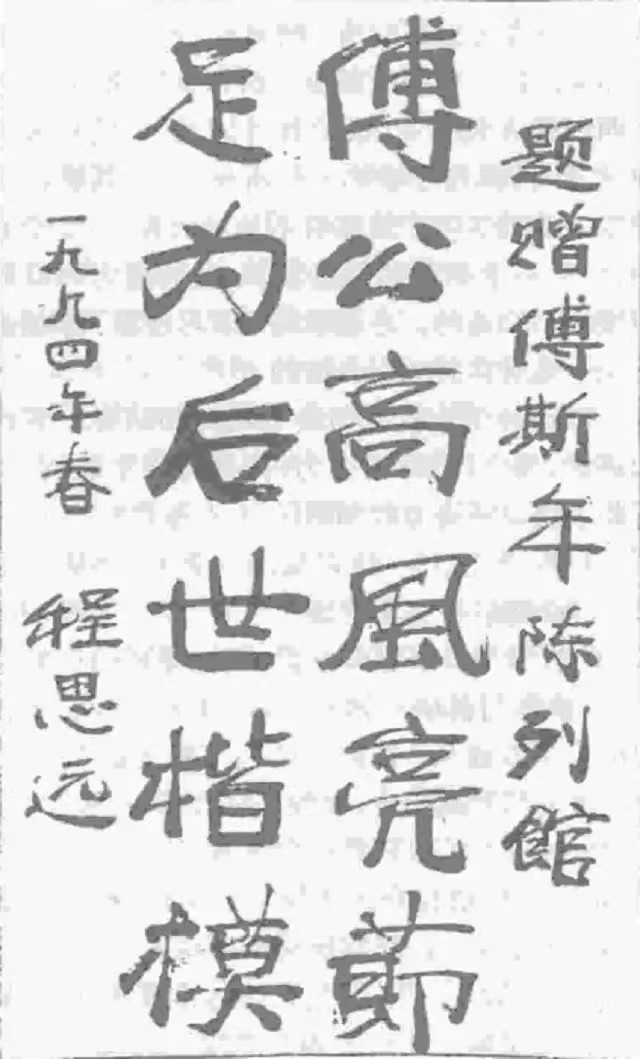 题赠傅斯年陈列館
傅公高風亮節
足为后世楷模
一九九四年春 程思远